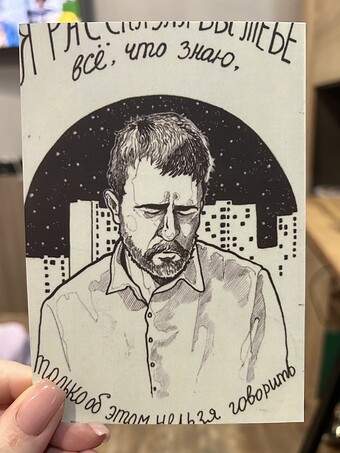 Я РАССКАЗАЛ БЫ ТЕБЕ
всё, что знаю,
только об этом нельзя говорить